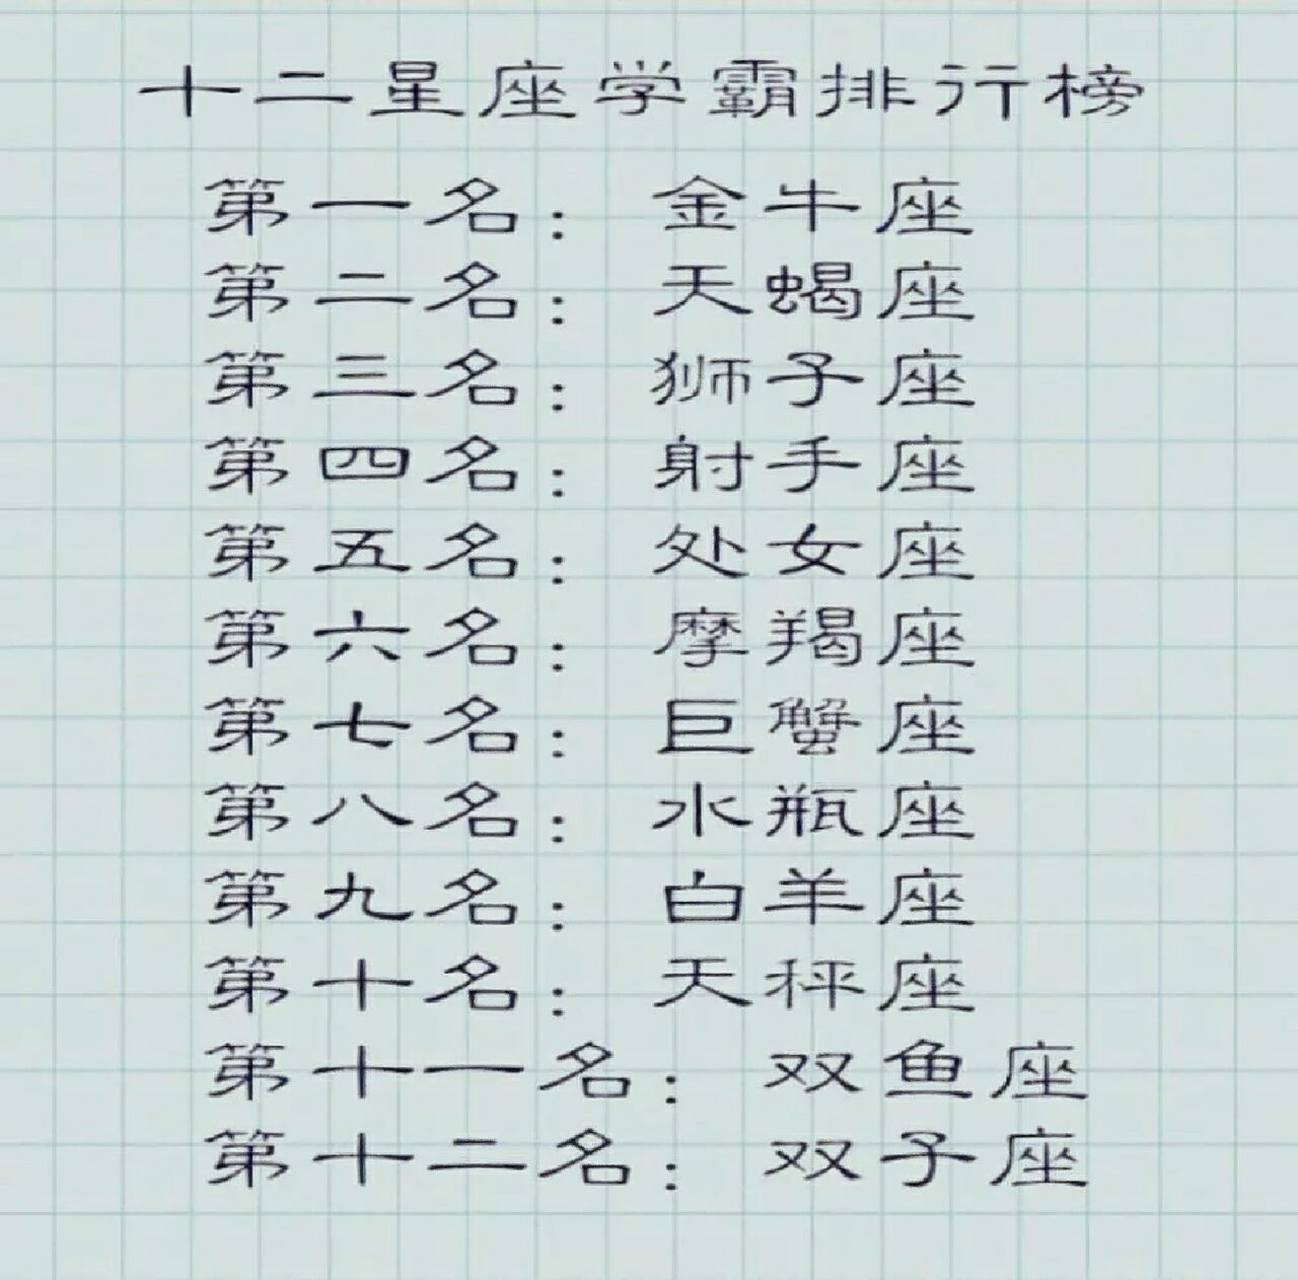 十二星座学霸排行榜
第一名：金牛座
第二名：天蝎座
第三名：狮子座
第四名：射手座
第五名：处女座
第六名：摩羯座
第七名：巨蟹座
第八名：水瓶座
第九名：白羊座
第十名：天秤座
第十一名：双鱼座
第十二名：双子座